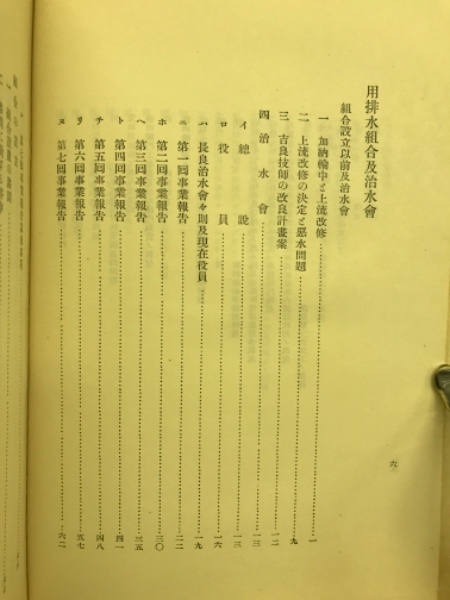 用排水組合及治水會
組合設立以前及治水會
一 加納輪中と上流改修……一
二 上流改修の決定と惡水問題……九
三 吉良技師の改良計畫案……一二
四 治水會……一三
イ 總說……一三
ロ 役員……一六
ハ 長良治水會々則及現在役員……一九
ニ 第一回事業報告……二二
ホ 第二回事業報告……三〇
ヘ 第三回事業報告……三五
ト 第四回事業報告……四一
チ 第五回事業報告……四八
リ 第六回事業報告……五七
ヌ 第七回事業報告……六二
六